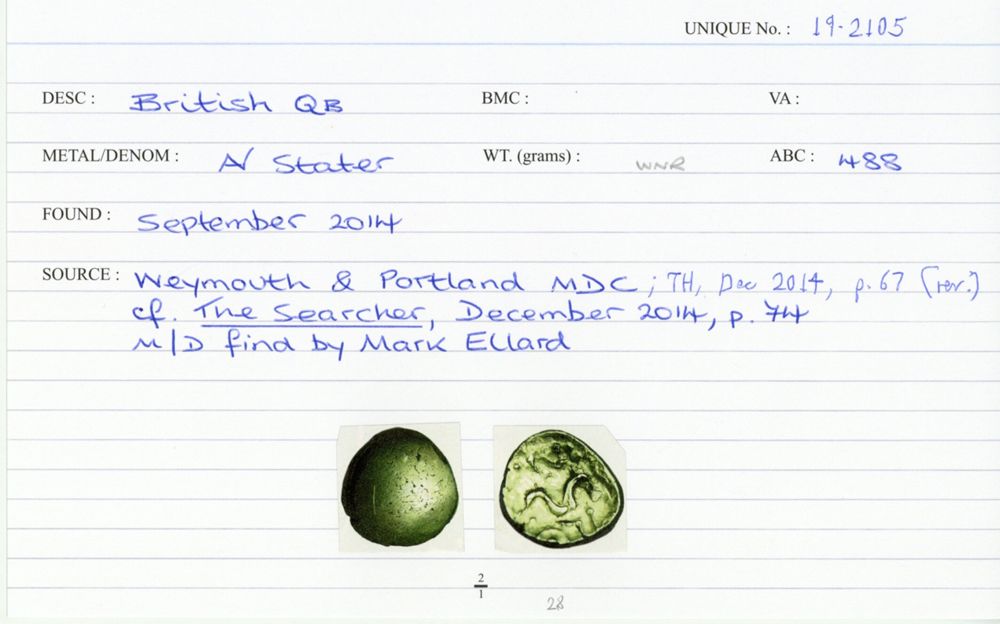 UNIQUE No. : 19-2105
DESC : British QB BMC : VA :
METAL/DENOM : A/ Stater WT. (grams) : WNR ABC : 488
FOUND : September 2014
SOURCE : Weymouth & Portland MDC; TH, Dec 2014, p.67 (rev.)
cf. The Searcher, December 2014, p. 74
M/D find by Mark Ellard
2
1
28